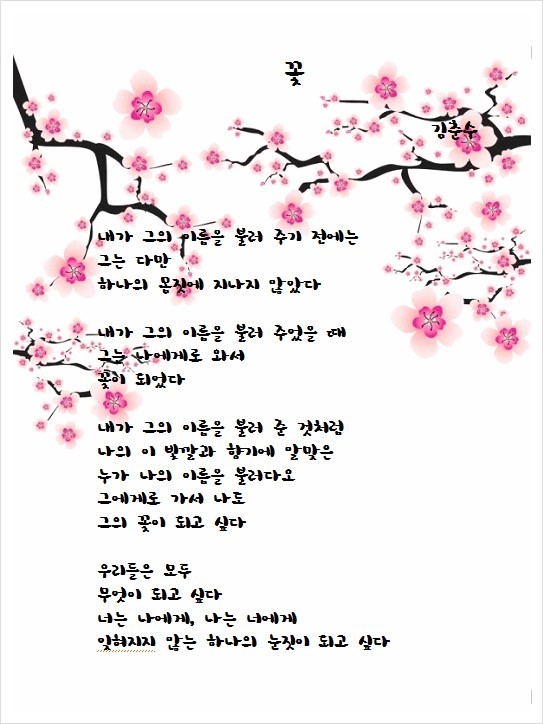 꽃
김춘수
내가 그의 이름을 불러 주기 전에는
그는 다만
하나의 몸짓에 지나지 않았다
내가 그의 이름을 불러 주었을 때
그는 나에게로 와서
꽃이 되었다
내가 그의 이름을 불러 준 것처럼
나의 이 빛깔과 향기에 알맞은
누가 나의 이름을 불러다오
그에게로 가서 나도
그의 꽃이 되고 싶다
우리들은 모두
무엇이 되고 싶다
너는 나에게, 나는 너에게
잊혀지지 않는 하나의 눈짓이 되고 싶다